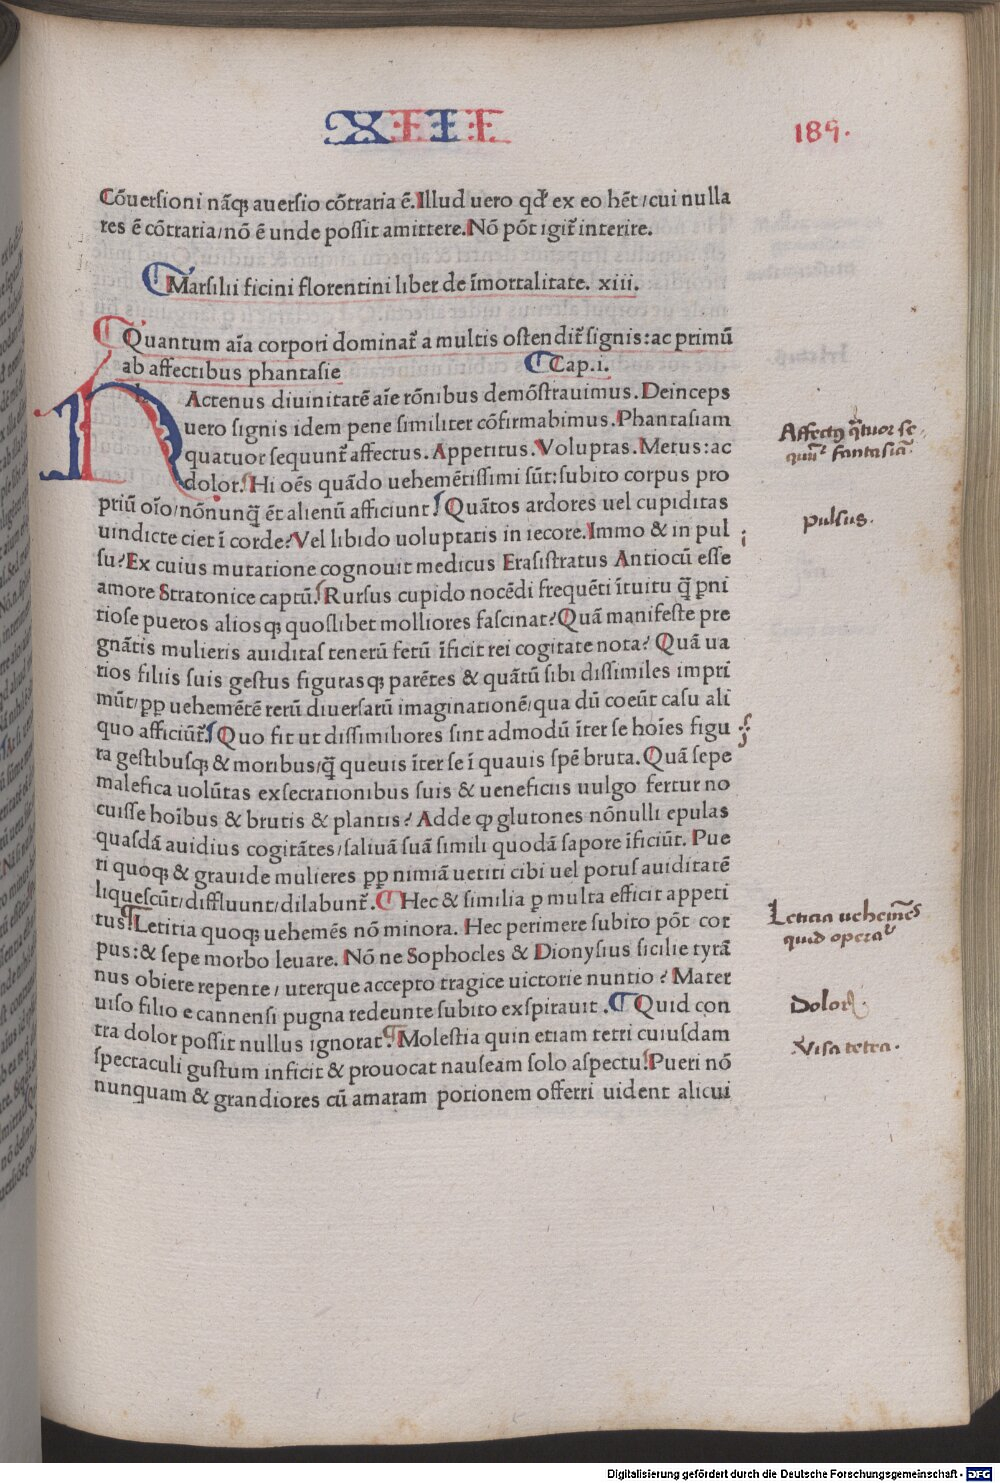 XIII
189.
Cōuersioni nāqꝫ auersio cōtraria ē. Illud uero qđ ex eo hēt / cui nulla
res ē cōtraria / nō ē unde possit amittere. Nō pōt igit̃ interire.
Marsilii ficini florentini liber de īmortalitate. xiii.
Quantum aīa corpori dominat̃ a multis ostendit̃ signis: ac primū
ab affectibus phantasie Cap. i.
h Actenus diuinitatē aīe rōnibus demōstrauimus. Deinceps
uero signis idem pene similiter cōfirmabimus. Phantasiam
quatuor sequunt̃ affectus. Appetitus. Voluptas. Metus: ac
dolor. Hi oēs quādo uehemētissimi sūt: subito corpus pro
priū oīo / nōnunq̄ ēt alienū afficiunt. Quātos ardores uel cupiditas
uindicte ciet ī corde? Vel libido uoluptatis in iecore. Immo & in pul
su? Ex cuius mutatione cognouit medicus Erasistratus Antiocū esse
amore Stratonice captū. Rursus cupido nocēdi frequēti ītuitu q̄ ꝑni
tiose pueros aliosqꝫ quoslibet molliores fascinat? Quā manifeste pre
gnātis mulieris auiditas tenerū fetū īficit rei cogitate nota? Quā ua
rios filiis suis gestus figurasqꝫ parētes & quātū sibi dissimiles impri
mūt / ꝓp uehemētē rerū diuersarū imaginationē / qua dū coeūt casu ali
quo afficiūt̃. Quo fit ut dissimiliores sint admodū īter se hoīes figu
ra gestibusqꝫ & moribus / q̄ queuis īter se ī quauis spē bruta. Quā sepe
malefica uolūtas exsecrationibus suis & ueneficiis uulgo fertur no
cuisse hoībus & brutis & plantis? Adde ꝙ glutones nōnulli epulas
quasdā auidius cogitātes / saliuā suā simili quodā sapore īficiūt. Pue
ri quoqꝫ & grauide mulieres ꝓp nimiā uetiti cibi uel potus auiditatē
liquescūt / diffluunt / dilabunt̃. Hec & similia ꝑ multa efficit appeti
tus. Letitia quoqꝫ uehemēs nō minora. Hec perimere subito pōt cor
pus: & sepe morbo leuare. Nōne Sophocles & Dionysius sicilie tyrā
nus obiere repente / uterque accepto tragice uictorie nuntio? Mater
uiso filio e cannensi pugna redeunte subito exspirauit. Quid con
tra dolor possit nullus ignorat. Molestia quin etiam tetri cuiusdam
spectaculi gustum inficit & prouocat nauseam solo aspectu. Pueri nō
nunquam & grandiores cū amaram potionem offerri uident alicui
Affectꝰ q̃tuor se-
quūt̃ fantasiā.
pulsus.
Leticia uehemēs
quid operat̃
Dolor
Visa tetra.
Digitalisierung gefördert durch die Deutsche Forschungsgemeinschaft - DFG